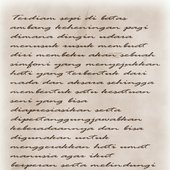 Terdiam sepi di batas
ambang keheningan pagi
dimana dingin udara
menusuk rusuk membuat
diri membeku abai sebuah
simfoni yang menyejukkan
hati yang terbentuk dari
nada dan aksara sehingga
membentuk satu kesatuan
seni yang bisa
diapresiasikan serta
dipertanggungjawabkan
keberadaannya dan bisa
digunakan untuk
menggerakkan hati umat
manusia agar ikut
berperan serta melindungi